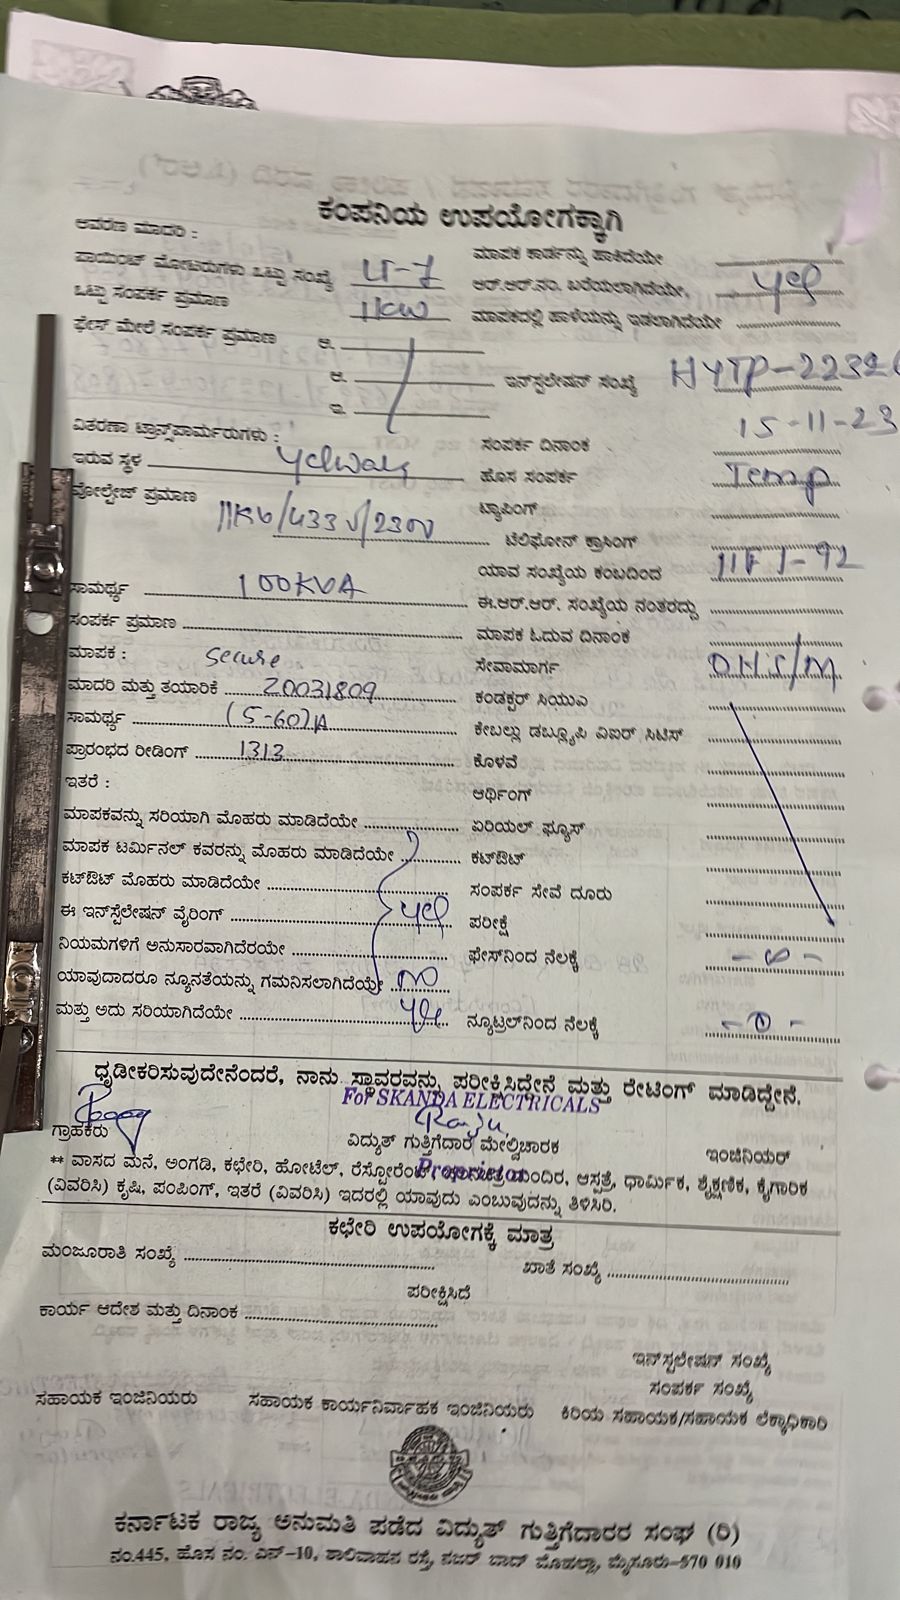 ಕಂಪನಿಯ ಉಪಯೋಗಕ್ಕಾಗಿ
ಆವರಣ ಮಾದರಿ :
ಪಾಯಿಂಟ್ ಮೋಟರುಗಳು ಒಟ್ಟು ಸಂಖ್ಯೆ
ಒಟ್ಟು ಸಂಪರ್ಕ ಪ್ರಮಾಣ 11KW
ಫೇಸ್ ಮೇಲೆ ಸಂಪರ್ಕ ಪ್ರಮಾಣ
ವಿತರಣಾ ಟ್ರಾನ್ಸ್‌ಪಾರ್ಮರುಗಳು :
ಇರುವ ಸ್ಥಳ Yelwala
ವೋಲ್ಟೇಜ್ ಪ್ರಮಾಣ 11KV/433V/230V
ಸಾಮರ್ಥ್ಯ 100KVA
ಸಂಪರ್ಕ ಪ್ರಮಾಣ
ಮಾಪಕ : Secure
ಮಾದರಿ ಮತ್ತು ತಯಾರಿಕೆ 20031809
ಸಾಮರ್ಥ್ಯ (5-60)A
ಪ್ರಾರಂಭದ ರೀಡಿಂಗ್ 1313
ಇತರೆ :
ಮಾಪಕವನ್ನು ಸರಿಯಾಗಿ ಮೊಹರು ಮಾಡಿದೆಯೇ
ಮಾಪಕ ಟರ್ಮಿನಲ್ ಕವರನ್ನು ಮೊಹರು ಮಾಡಿದೆಯೇ
ಕಟ್‌ಔಟ್ ಮೊಹರು ಮಾಡಿದೆಯೇ
ಈ ಇನ್‌ಸ್ಪೆಲೇಷನ್ ವೈರಿಂಗ್ yes
ನಿಯಮಗಳಿಗೆ ಅನುಸಾರವಾಗಿದೆರಯೇ
ಯಾವುದಾದರೂ ನ್ಯೂನತೆಯನ್ನು ಗಮನಿಸಲಾಗಿದೆಯೇ
ಮತ್ತು ಅದು ಸರಿಯಾಗಿದೆಯೇ yes
ಮಾಪಕ ಕಾರ್ಡನ್ನು ಹಾಕಿದೆಯೇ
ಆರ್.ಆರ್.ನಂ. ಬರೆಯಲಾಗಿದೆಯೇ, yes
ಮಾಪಕದಲ್ಲಿ ಹಾಳೆಯನ್ನು ಇಡಲಾಗಿದೆಯೇ
ಇನ್‌ಸ್ಟಲೇಷನ್ ಸಂಖ್ಯೆ HYTP-22326
15-11-23
ಸಂಪರ್ಕ ದಿನಾಂಕ
ಹೊಸ ಸಂಪರ್ಕ Temp
ಟ್ಯಾಪಿಂಗ್
ಟೆಲಿಫೋನ್ ಕ್ರಾಸಿಂಗ್
ಯಾವ ಸಂಖ್ಯೆಯ ಕಂಬದಿಂದ
ಈ.ಆರ್.ಆರ್. ಸಂಖ್ಯೆಯ ನಂತರದ್ದು
ಮಾಪಕ ಓದುವ ದಿನಾಂಕ
ಸೇವಾಮಾರ್ಗ OHS/M
ಕಂಡಕ್ಟರ್ ಸಿಯುಎ
ಕೇಬಲ್ಲು ಡಬ್ಲ್ಯೂಪಿ ವಿಐರ್ ಸಿಟಿಸ್
ಕೊಳವೆ
ಆರ್ಥಿಂಗ್
ಏರಿಯಲ್ ಫ್ಯೂಸ್
ಕಟ್‌ಔಟ್
ಸಂಪರ್ಕ ಸೇವೆ ದೂರು
ಪರೀಕ್ಷೆ
ಫೇಸ್‌ನಿಂದ ನೆಲಕ್ಕೆ - ∞ -
ನ್ಯೂಟ್ರಲ್‌ನಿಂದ ನೆಲಕ್ಕೆ - 0 -
ಧೃಡೀಕರಿಸುವುದೇನೆಂದರೆ, ನಾನು ಸ್ಥಾವರವನ್ನು ಪರೀಕ್ಷಿಸಿದ್ದೇನೆ ಮತ್ತು ರೇಟಿಂಗ್ ಮಾಡಿದ್ದೇನೆ.
For SKANDA ELECTRICALS
Raju
ಗ್ರಾಹಕರು ವಿದ್ಯುತ್ ಗುತ್ತಿಗೆದಾರ ಮೇಲ್ವಿಚಾರಕ ಇಂಜಿನಿಯರ್
Proprietor
** ವಾಸದ ಮನೆ, ಅಂಗಡಿ, ಕಛೇರಿ, ಹೋಟೆಲ್, ರೆಸ್ಟೋರೆಂಟ್, ಮಂದಿರ, ಆಸ್ಪತ್ರೆ, ಧಾರ್ಮಿಕ, ಶೈಕ್ಷಣಿಕ, ಕೈಗಾರಿಕ
(ವಿವರಿಸಿ) ಕೃಷಿ, ಪಂಪಿಂಗ್, ಇತರೆ (ವಿವರಿಸಿ) ಇದರಲ್ಲಿ ಯಾವುದು ಎಂಬುವುದನ್ನು ತಿಳಿಸಿರಿ.
ಕಛೇರಿ ಉಪಯೋಗಕ್ಕೆ ಮಾತ್ರ
ಮಂಜೂರಾತಿ ಸಂಖ್ಯೆ ಖಾತೆ ಸಂಖ್ಯೆ
ಪರೀಕ್ಷಿಸಿದೆ
ಕಾರ್ಯ ಆದೇಶ ಮತ್ತು ದಿನಾಂಕ
ಇನ್‌ಸ್ಟಲೇಷನ್ ಸಂಖ್ಯೆ
ಸಂಪರ್ಕ ಸಂಖ್ಯೆ
ಸಹಾಯಕ ಇಂಜಿನಿಯರು ಸಹಾಯಕ ಕಾರ್ಯನಿರ್ವಾಹಕ ಇಂಜಿನಿಯರು ಕಿರಿಯ ಸಹಾಯಕ/ಸಹಾಯಕ ಲೆಕ್ಕಾಧಿಕಾರಿ
ಕರ್ನಾಟಕ ರಾಜ್ಯ ಅನುಮತಿ ಪಡೆದ ವಿದ್ಯುತ್ ಗುತ್ತಿಗೆದಾರರ ಸಂಘ (ರಿ)
ನಂ.445, ಹೊಸ ನಂ. ಎನ್-10, ಶಾಲಿವಾಹನ ರಸ್ತೆ, ನಜರ್ ಬಾದ್ ಮೊಹಲ್ಲಾ, ಮೈಸೂರು-570 010